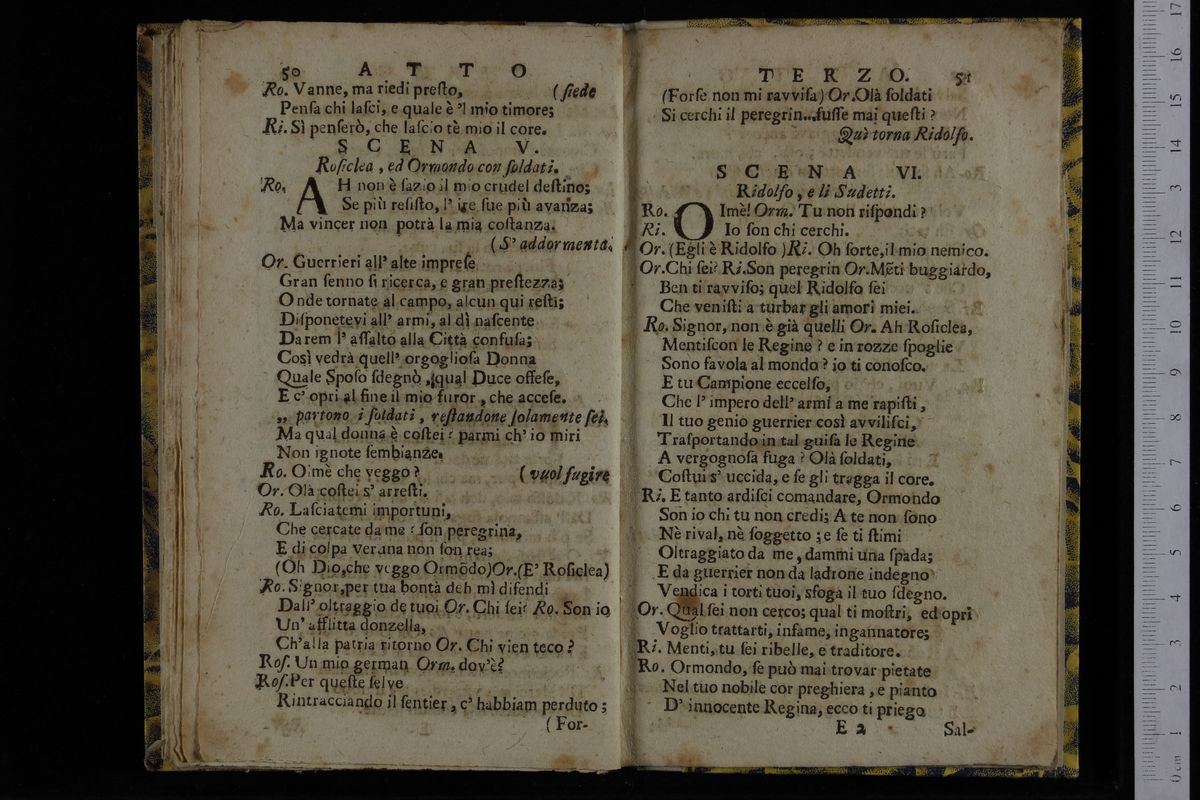 50 A T T O
Ro. Vanne, ma riedi preſto, (ſiede
Penſa chi laſci, e quale è 'l mio timore;
Ri. Sì penſerò, che laſcio tè mio il core.
S C E N A V.
Roſiclea , ed Ormondo con ſoldati.
Ro, AH non è ſazio il mio crudel deſtino;
Se più reſiſto, l' ire ſue più avanza;
Ma vincer non potrà la mia coſtanza.
(S' addormenta.
Or. Guerrieri all' alte impreſe
Gran ſenno ſi ricerca, e gran preſtezza;
Onde tornate al campo, alcun qui reſti;
Diſponetevi all' armi, al dì naſcente
Darem l' aſſalto alla Città confuſa;
Così vedrà quell' orgoglioſa Donna
Quale Spoſo ſdegnò , qual Duce offeſe,
E c' opri al fine il mio furor , che acceſe.
„ partono i ſoldati , reſtandone ſolamente ſei,
Ma qual donna è coſtei ? parmi ch' io miri
Non ignote ſembianze.
Ro. Oimè che veggo ? (vuol fugire
Or. Olà coſtei s' arreſti.
Ro. Laſciatemi importuni,
Che cercate da me ? ſon peregrina,
E di colpa veruna non ſon rea;
(Oh Dio,che veggo Ormōdo)Or.(E' Roſiclea)
Ro. Signor,per tua bontà deh mi difendi
Dall' oltraggio de tuoi Or. Chi ſei? Ro. Son io
Un' afflitta donzella,
Ch'alla patria ritorno Or. Chi vien teco ?
Roſ. Un mio german Orm. dov'è?
Roſ.Per queſte ſelve
Rintracciando il ſentier , c' habbiam perduto ;
(For-
T E R Z O. 51
(Forſe non mi ravviſa) Or.Olà ſoldati
Si cerchi il peregrin...fuſſe mai queſti ?
Quì torna Ridolfo.
S C E N A VI.
Ridolfo , e li Sudetti.
Ro. OImè! Orm. Tu non riſpondi ?
Ri. Io ſon chi cerchi.
Or. (Egli è Ridolfo )Ri. Oh ſorte,il mio nemico.
Or.Chi ſei? Ri.Son peregrin Or.Mēti buggiardo,
Ben ti ravviſo; quel Ridolfo ſei
Che veniſti a turbar gli amori miei.
Ro. Signor, non è già quelli Or. Ah Roſiclea,
Mentiſcon le Regine ? e in rozze ſpoglie
Sono favola al mondo ? io ti conoſco.
E tu Campione eccelſo,
Che l' impero dell' armi a me rapiſti ,
Il tuo genio guerrier così avviliſci,
Traſportando in tal guiſa le Regine
A vergognoſa fuga ? Olà ſoldati,
Coſtui s' uccida, e ſe gli tragga il core.
Ri. E tanto ardiſci comandare, Ormondo
Son io chi tu non credi; A te non ſono
Nè rival, nè ſoggetto ; e ſe ti ſtimi
Oltraggiato da me , dammi una ſpada;
E da guerrier non da ladrone indegno
Vendica i torti tuoi, sfoga il tuo ſdegno.
Or. Qual ſei non cerco; qual ti moſtri, ed opri
Voglio trattarti, infame, ingannatore;
Ri. Menti, tu ſei ribelle, e traditore.
Ro. Ormondo, ſe può mai trovar pietate
Nel tuo nobile cor preghiera , e pianto
D' innocente Regina, ecco ti priego
E 2 Sal-